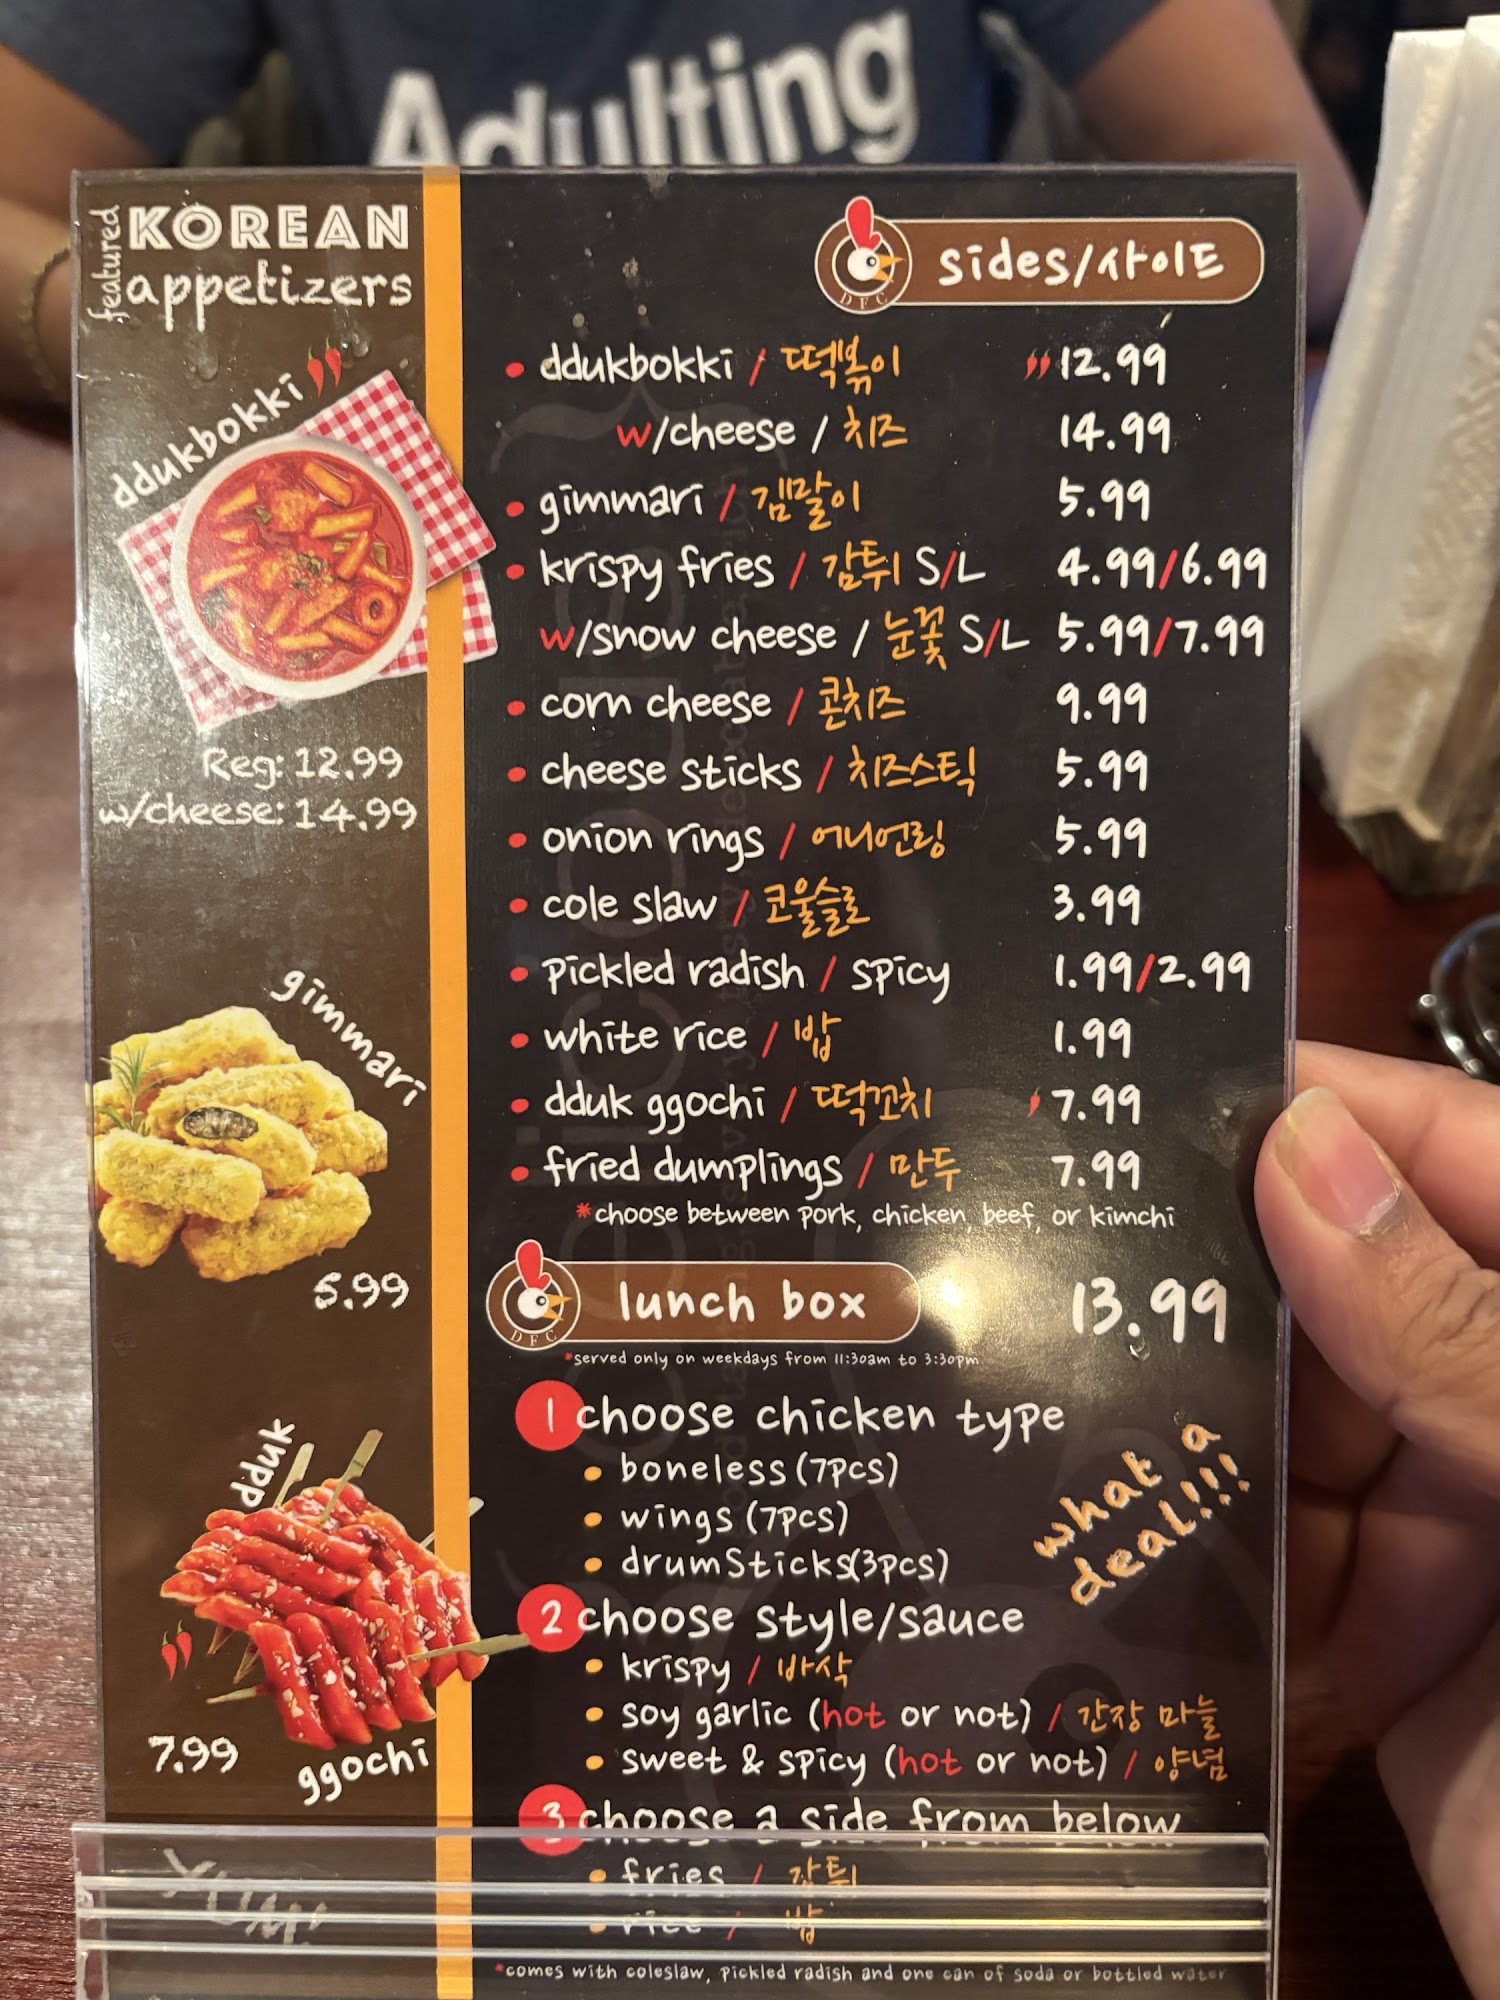 Adulting
featured
KOREAN
appetizers
ddukbokki
Reg: 12.99
w/cheese: 14.99
gimmari
5.99
dduk
ggochi
7.99
DFC
sides/사이드
ddukbokki / 떡볶이 12.99
w/cheese / 치즈 14.99
gimmari / 김말이 5.99
krispy fries / 감튀 S/L 4.99/6.99
w/snow cheese / 눈꽃 S/L 5.99/7.99
corn cheese / 콘치즈 9.99
cheese sticks / 치즈스틱 5.99
onion rings / 어니언링 5.99
cole slaw / 코울슬로 3.99
pickled radish / spicy 1.99/2.99
white rice / 밥 1.99
dduk ggochi / 떡꼬치 7.99
fried dumplings / 만두 7.99
*choose between pork, chicken, beef, or kimchi
DFC
lunch box 13.99
*served only on weekdays from 11:30am to 3:30pm
1 choose chicken type
boneless (7pcs)
wings (7pcs)
drumsticks(3pcs)
what a
deal!!!
2 choose style/sauce
krispy / 바삭
soy garlic (hot or not) / 간장 마늘
sweet & spicy (hot or not) / 양념
3 choose a side from below
fries / 감튀
rice / 밥
*comes with coleslaw, pickled radish and one can of soda or bottled water